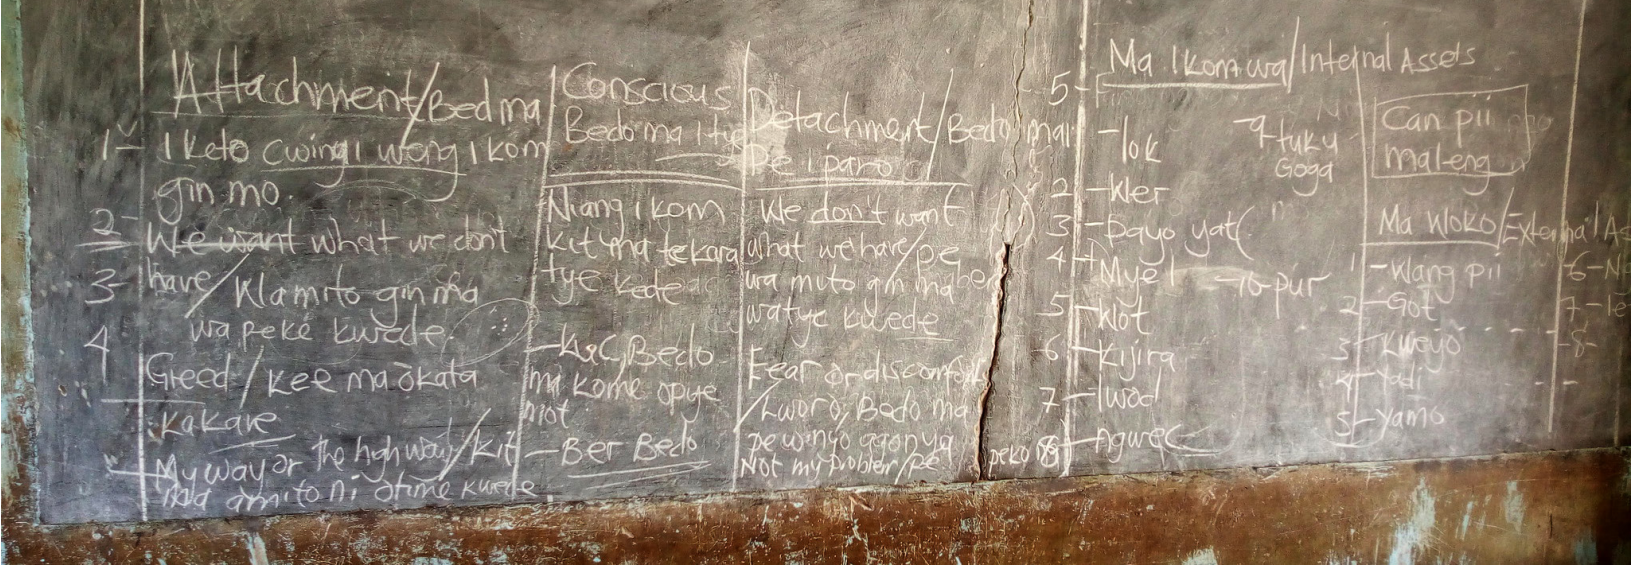 Attachment/Bed ma
1- I keto cwingi weng i kom
gin mo.
2- We want what we don't
3- have/Kla mito gin ma
wa peke kwede.
4 Greed/kee ma okata
kakare
- My way or the high way/kit
ma amito ni otime kwede
Conscious
Bedo ma i tye
Niang i kom
kit ma tekara
tye kede
- Bedo
ma kome opye
mot
- Ber Bedo
Detachment/Bedo mai
Pe i paro
We don't want
what we have/pe
wa mito gin ma
watye kwede
Fear or discomfort
/Lworo, Bedo ma
pe winyo agonya
Not my problem/pe peko
Ma I Kom wa/Internal Assets
5-
- lok
2 - Wer
3 - Dayo yat
4 - Myel
5 - Wot
6 - Kijira
7 - lwod
8 - ngwec
- 9 tuku
Goga
- 10 pur
Can pii
maleng
Ma Woko/External As
1 - Wang pii
2 - Got
3 - Kweyo
4 - Yadi
5 - Yamo
-6-
-7-
-8-